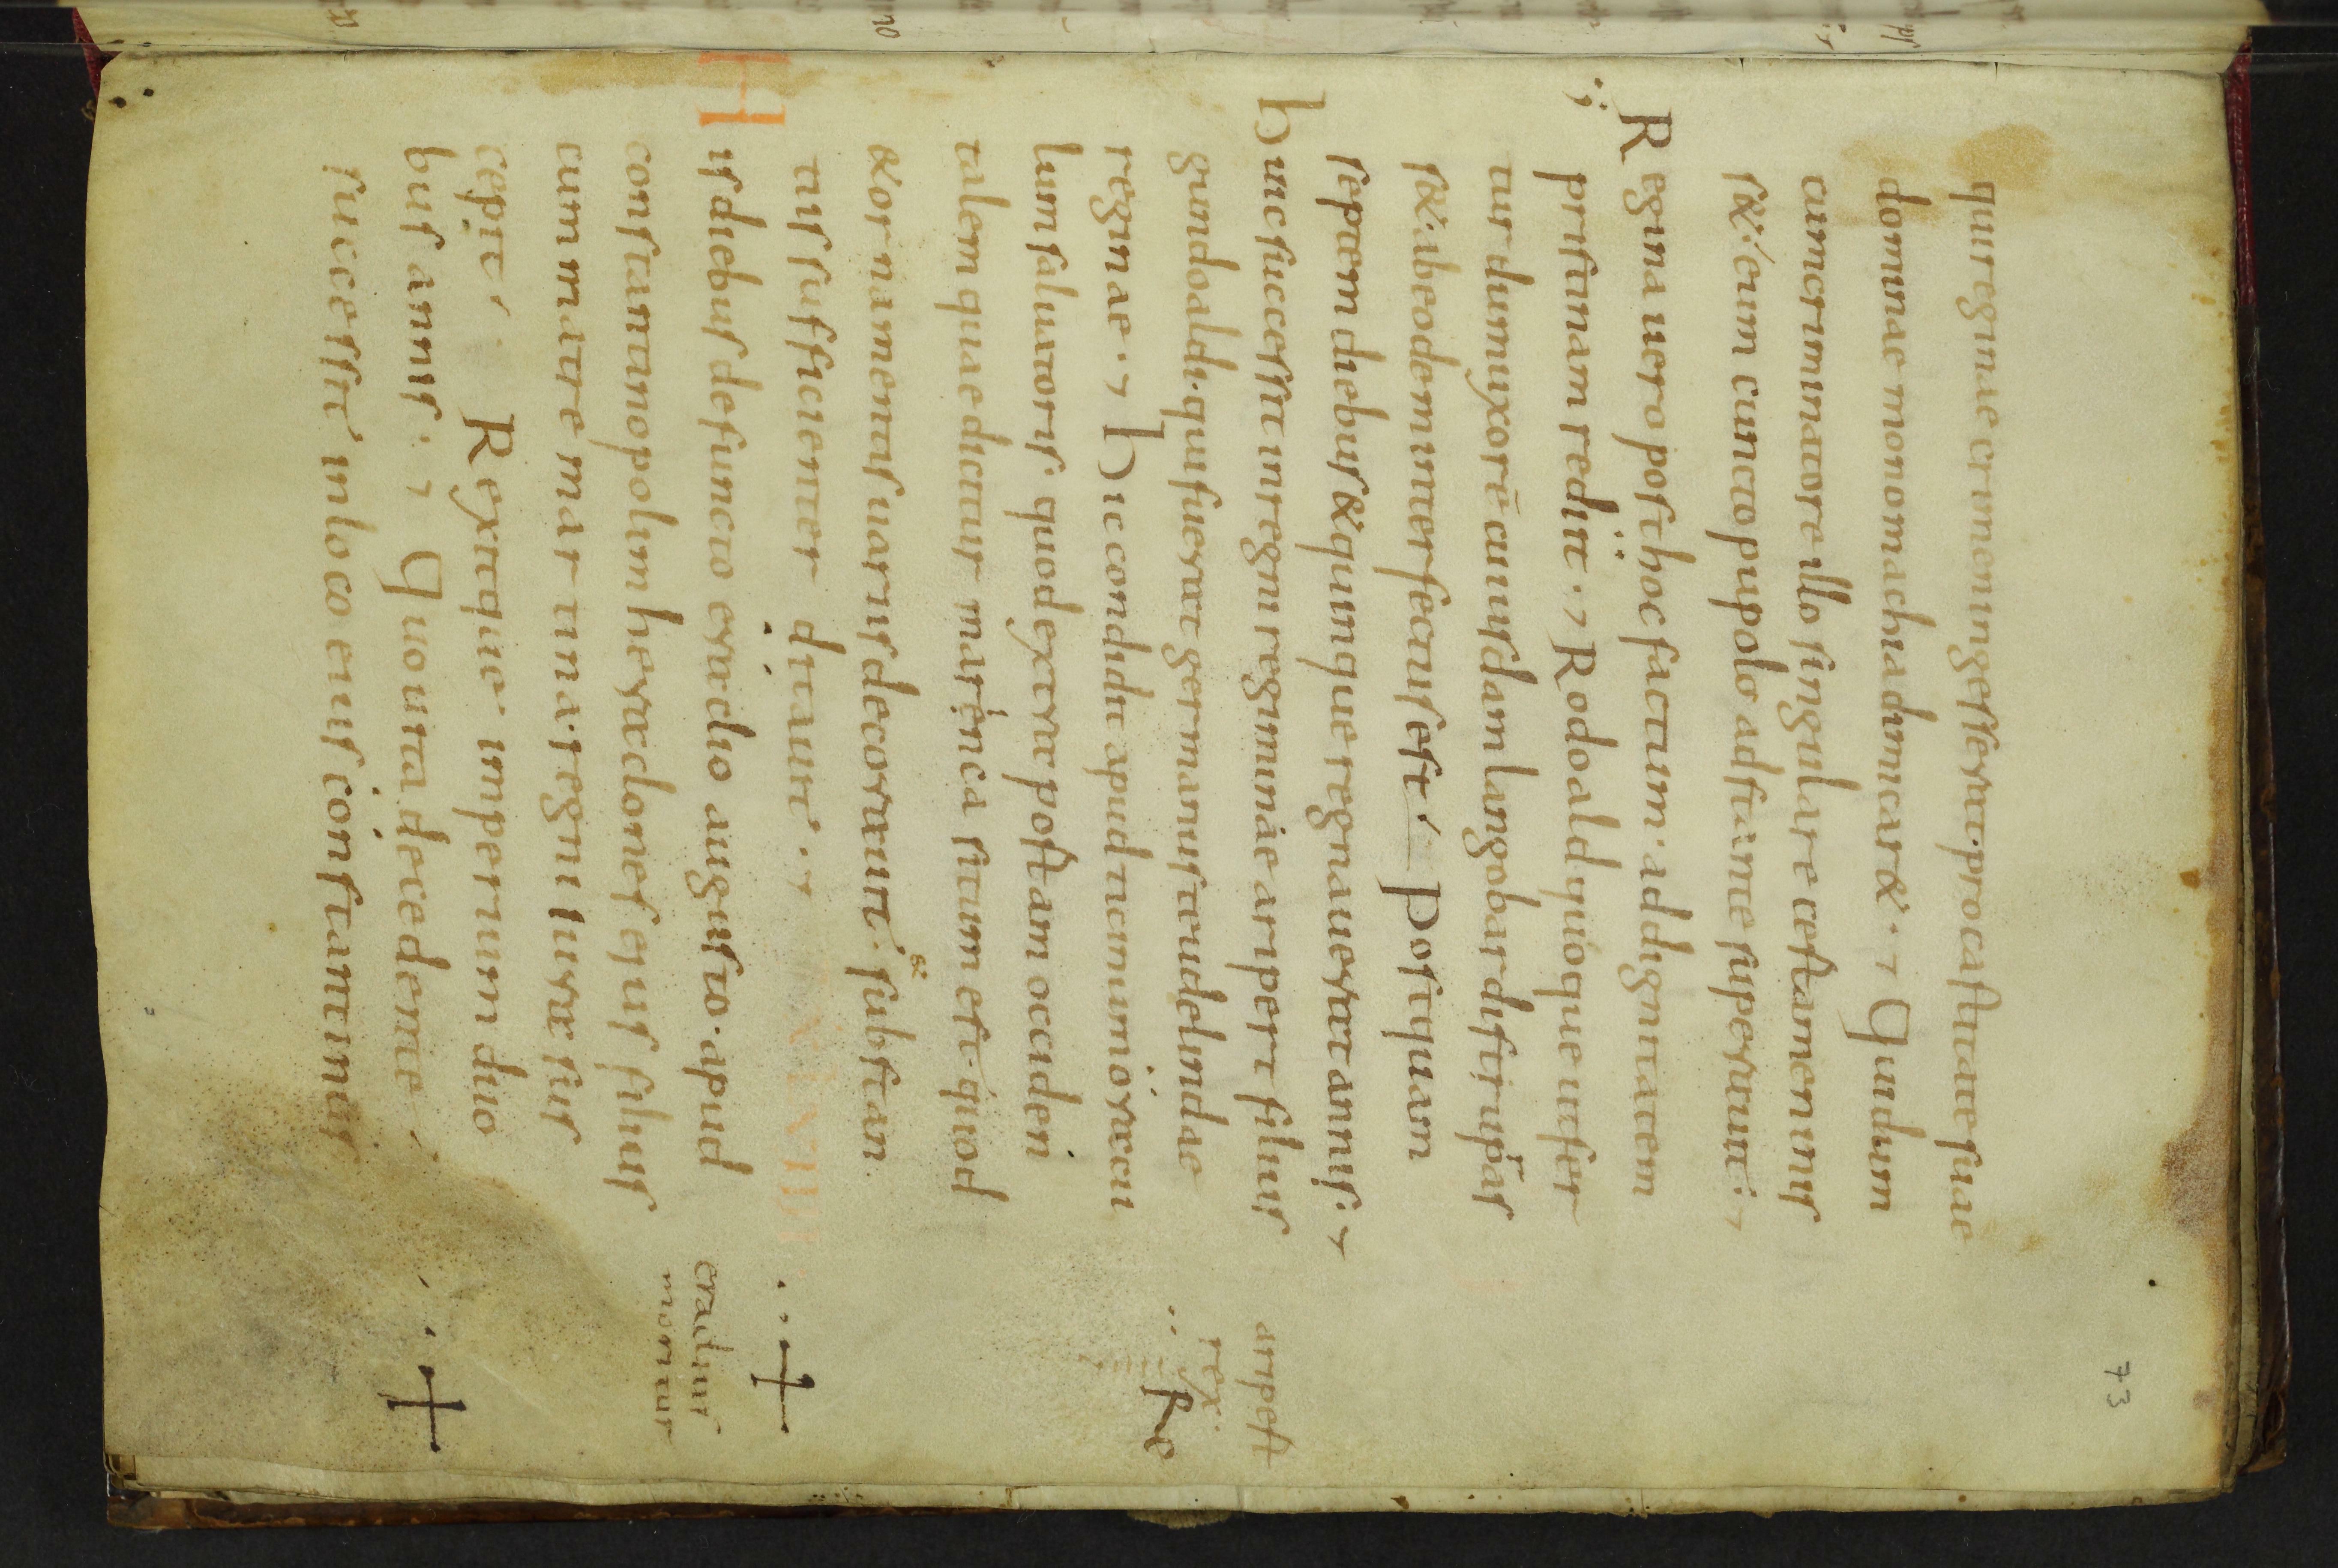 73
qui reginae crimen ingesserat. pro castitate suae
domnae monomachia dimicar&. Qui dum
cum criminatore illo singulare certamen inis
s&. eum cuncto populo adstante superauit.
Regina uero post hoc factum. ad dignitatem
pristinam rediit. Rodoald quoque ut fer
tur dum uxorē cuiusdam langobardi stupras
s&. ab eodem interfectus est. Postquam
septem diebus & quinque regnauerat annis.
Huic successit in regni regimine aripert filius
aripert
gundoaldi. qui fuerat germanus teudelindae
rex.
reginae. Hic condidit apud ticinum oracu
lum saluatoris quod extra portam occiden
talem quae dicitur marenca situm est. quod
& ornamentis uariis decorauit. & substan
tiis sufficienter ditauit.
XLVIIII
His diebus defuncto eraclio augusto. apud
eraclius
constantinopolim heraclones eius filius
moritur
cum matre martina. regni iura sus
cepit. Rexitque imperium duo
bus annis. Quo uita decedente.
successit in loco eius constantinus